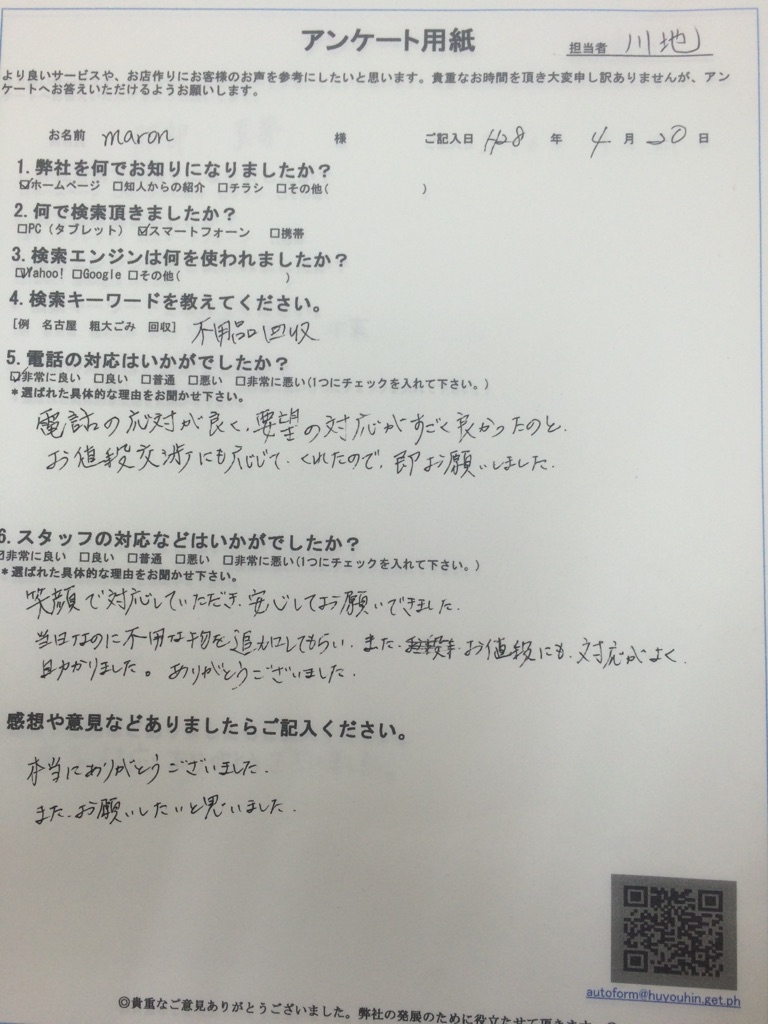 アンケート用紙
担当者 川地
より良いサービスや、お店作りにお客様のお声を参考にしたいと思います。貴重なお時間を頂き大変申し訳ありませんが、アン
ケートへお答えいただけるようお願いします。
お名前 maron 様 ご記入日 H28 年 4 月 20 日
1.弊社を何でお知りになりましたか？
☑ホームページ □知人からの紹介 □チラシ □その他( )
2.何で検索頂きましたか？
□PC（タブレット） ☑スマートフォーン □携帯
3.検索エンジンは何を使われましたか？
☑Yahoo! □Google □その他( )
4.検索キーワードを教えてください。
[例 名古屋 粗大ごみ 回収] 不用品回収
5.電話の対応はいかがでしたか？
☑非常に良い □良い □普通 □悪い □非常に悪い(1つにチェックを入れて下さい。)
*選ばれた具体的な理由をお聞かせ下さい。
電話の応対が良く、要望の対応がすごく良かったのと、
お値段交渉にも応じて、くれたので、即お願いしました.
6.スタッフの対応などはいかがでしたか？
☑非常に良い □良い □普通 □悪い □非常に悪い(1つにチェックを入れて下さい。)
*選ばれた具体的な理由をお聞かせ下さい。
笑顔で対応していただき、安心してお願いできました.
当日なのに不用な物を追加してもらい、また、お値段にも、対応がよく、
助かりました。ありがとうございました.
感想や意見などありましたらご記入ください。
本当にありがとうございました.
また、お願いしたいと思いました.
autoform@huyouhin.get.ph
◎貴重なご意見ありがとうございました。弊社の発展のために役立たせて頂きます。